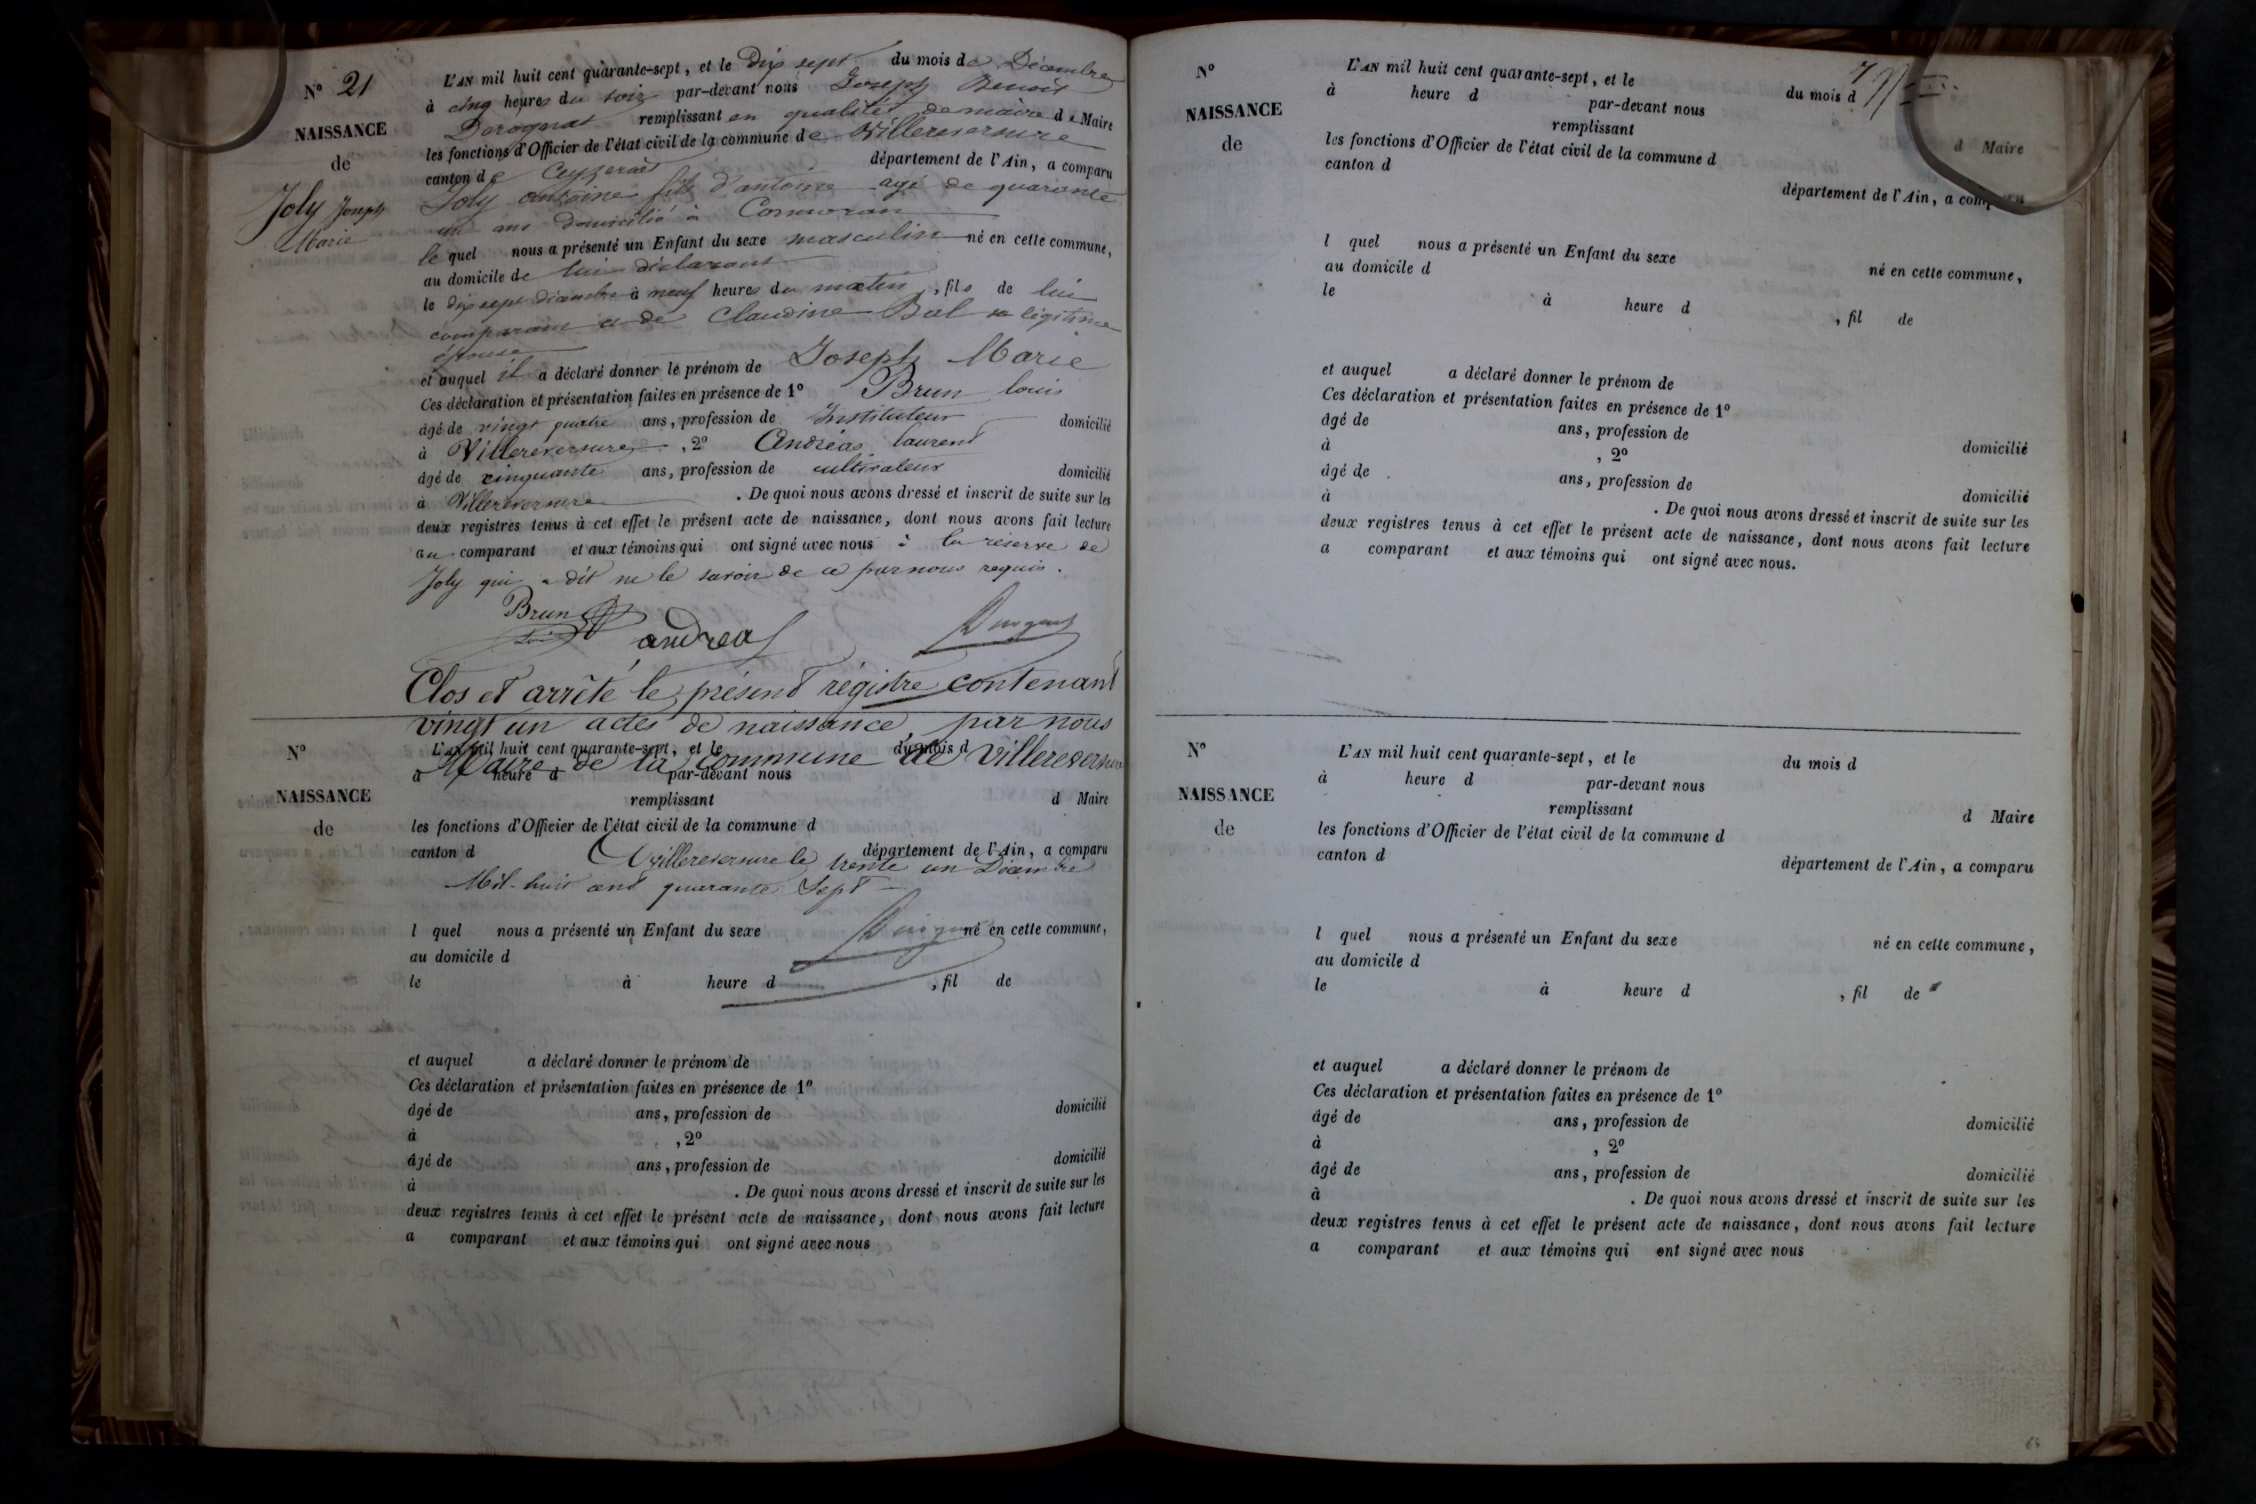 N° 21
NAISSANCE
de
Joly Joseph
Marie
L'AN mil huit cent quarante-sept, et le dix sept du mois de Décembre
à cinq heures du soir par-devant nous Joseph Benoit
remplissant en qualité de maire de Maire
les fonctions d'Officier de l'état civil de la commune de Villereversure
canton de Ceyzeriat département de l'Ain, a comparu
Joly antoine fils d'antoine agé de quarante
un ans domicilié à Cormoran
le quel nous a présenté un Enfant du sexe masculin né en cette commune,
au domicile de lui déclarant
le dix sept décembre à neuf heures du matin, fils de lui
comparant et de Claudine Bal sa légitime
épouse
et auquel il a déclaré donner le prénom de Joseph Marie
Ces déclaration et présentation faites en présence de 1° Brun louis
âgé de vingt quatre ans, profession de Instituteur domicilié
à Villereversure, 2° Andréas laurent
âgé de cinquante ans, profession de cultivateur domicilié
à Villereversure. De quoi nous avons dressé et inscrit de suite sur les
deux registres tenus à cet effet le présent acte de naissance, dont nous avons fait lecture
au comparant et aux témoins qui ont signé avec nous à la réserve de
Joly qui a dit ne le savoir de ce par nous requis.
Brun
andreas
Clos et arrêté le présent régistre contenant
vingt un actes de naissance, par nous
Maire de la commune de Villereversure
N°
NAISSANCE
de
L'AN mil huit cent quarante-sept, et le du mois d
à heure d par-devant nous
remplissant d Maire
les fonctions d'Officier de l'état civil de la commune d
canton d département de l'Ain, a comparu
Villereversure le trente un Décembre
Mil-huit cent quarante Sept
l quel nous a présenté un Enfant du sexe né en cette commune,
au domicile d
le à heure d , fil de
et auquel a déclaré donner le prénom de
Ces déclaration et présentation faites en présence de 1°
âgé de ans, profession de domicilié
à , 2°
âgé de ans, profession de domicilié
à . De quoi nous avons dressé et inscrit de suite sur les
deux registres tenus à cet effet le présent acte de naissance, dont nous avons fait lecture
a comparant et aux témoins qui ont signé avec nous
N°
NAISSANCE
de
L'AN mil huit cent quarante-sept, et le du mois d
à heure d par-devant nous
remplissant d Maire
les fonctions d'Officier de l'état civil de la commune d
canton d département de l'Ain, a comparu
l quel nous a présenté un Enfant du sexe né en cette commune,
au domicile d
le à heure d , fil de
et auquel a déclaré donner le prénom de
Ces déclaration et présentation faites en présence de 1°
âgé de ans, profession de domicilié
à , 2°
âgé de ans, profession de domicilié
à . De quoi nous avons dressé et inscrit de suite sur les
deux registres tenus à cet effet le présent acte de naissance, dont nous avons fait lecture
a comparant et aux témoins qui ont signé avec nous.
N°
NAISSANCE
de
L'AN mil huit cent quarante-sept, et le du mois d
à heure d par-devant nous
remplissant d Maire
les fonctions d'Officier de l'état civil de la commune d
canton d département de l'Ain, a comparu
l quel nous a présenté un Enfant du sexe né en cette commune,
au domicile d
le à heure d , fil de
et auquel a déclaré donner le prénom de
Ces déclaration et présentation faites en présence de 1°
âgé de ans, profession de domicilié
à , 2°
âgé de ans, profession de domicilié
à . De quoi nous avons dressé et inscrit de suite sur les
deux registres tenus à cet effet le présent acte de naissance, dont nous avons fait lecture
a comparant et aux témoins qui ont signé avec nous